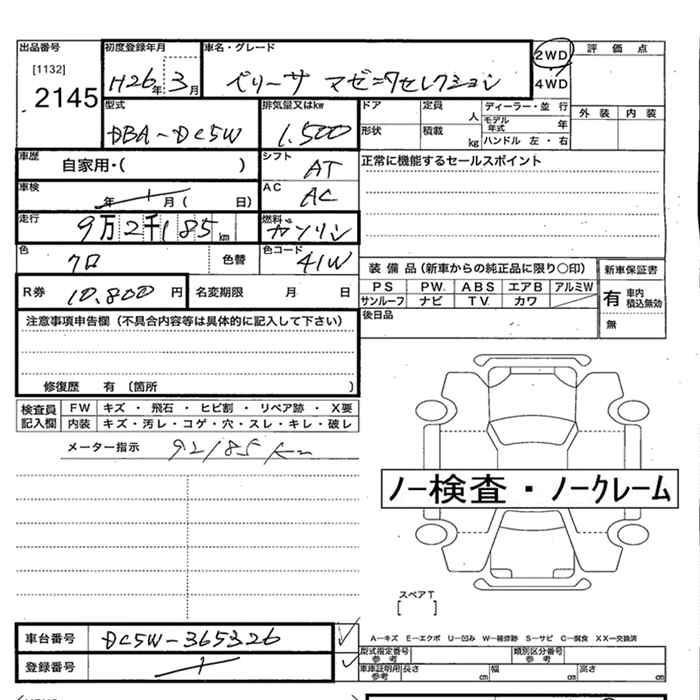 出品番号 初度登録年月 車名・グレード 2WD 評価点
[1132] H26年 3月 ベリーサ マゼニワセレクション 4WD
2145
型式 排気量又はkw ドア 定員 人 ディーラー・並行 外装 内装
DBA-DC5W 1.500 形状 積載 kg モデル年式 年
ハンドル 左・右
車歴 自家用・( ) シフト AT 正常に機能するセールスポイント
車検 年 月( 日) AC AC
走行 9万2千185km 燃料 ガソリン
色 クロ 色替 色コード 41W
装備品(新車からの純正品に限り○印) 新車保証書
R券 10.800円 名変期限 月 日 PS PW ABS エアB アルミW 有 車内 積込無効
サンルーフ ナビ TV カワ
注意事項申告欄(不具合内容等は具体的に記入して下さい) 後日品 無
修復歴 有(箇所 )
検査員記入欄 FW キズ・飛石・ヒビ割・リペア跡・X要
内装 キズ・汚レ・コゲ・穴・スレ・キレ・破レ
メーター指示 92185km
ノー検査・ノークレーム
スペアT
[ ]
車台番号 DC5W-365326 A-キズ E-エクボ U-凹み W-補修跡 S-サビ C-腐食 XX-交換済
登録番号 型式指定番号 参考 類別区分番号 参考
車庫証明用 参考 長さ cm 幅 cm 高さ cm